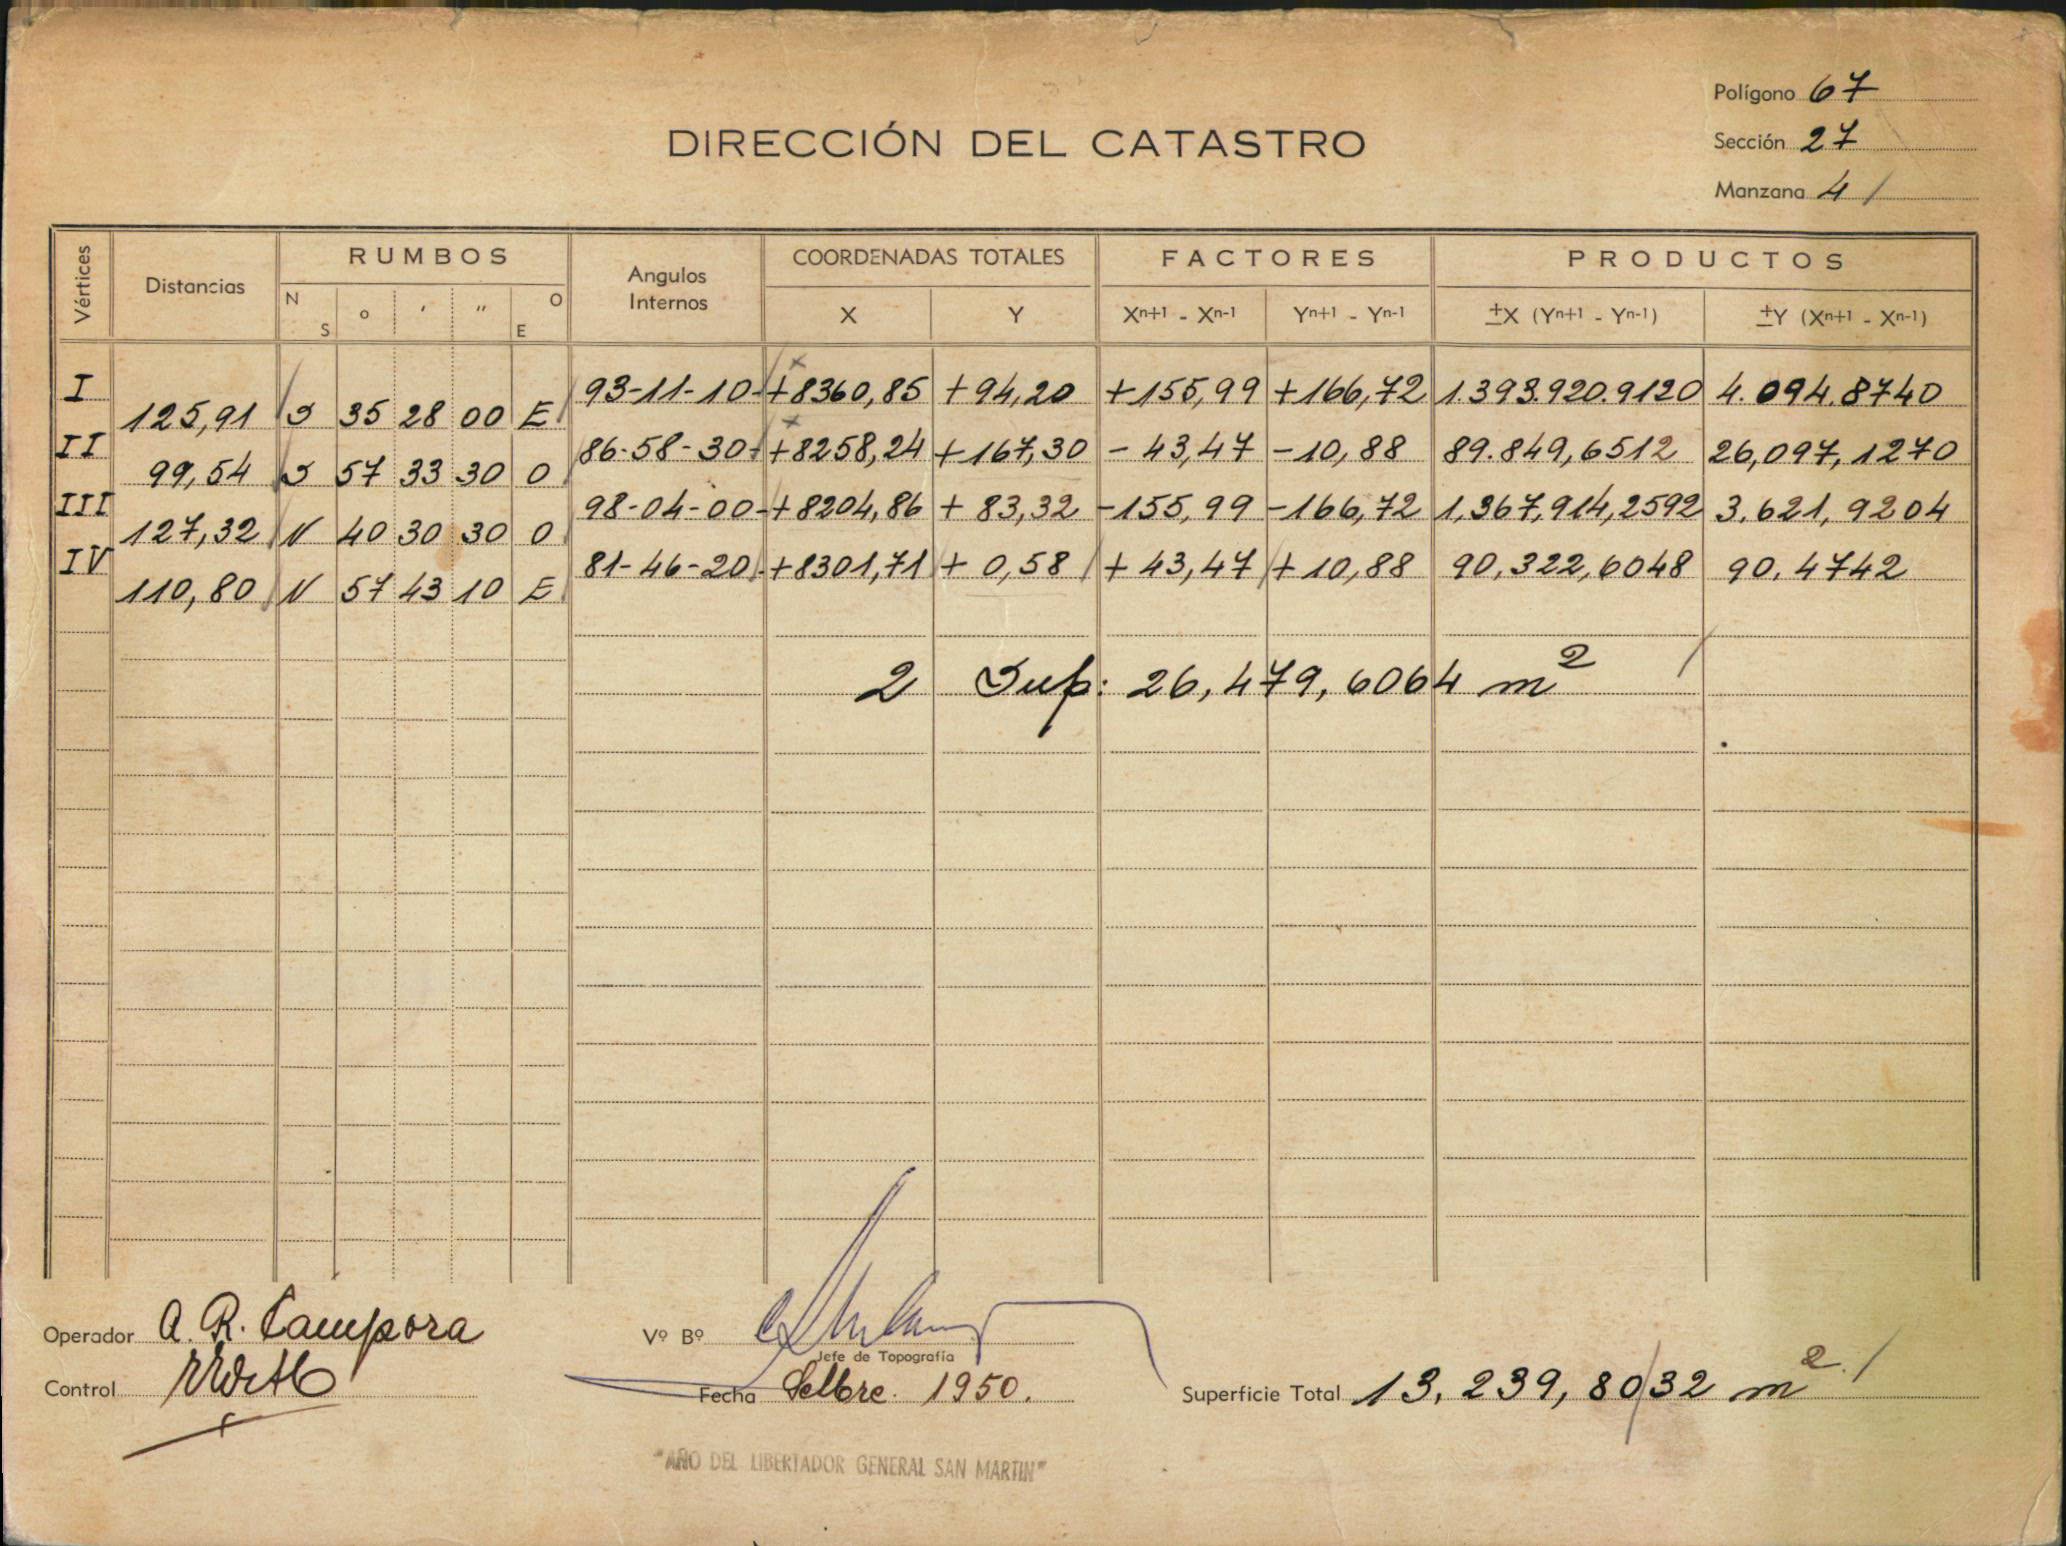 Polígono 67
DIRECCIÓN DEL CATASTRO
Sección 27
Manzana 4
Vértices Distancias RUMBOS Angulos Internos COORDENADAS TOTALES FACTORES PRODUCTOS
N S o ' " O E X Y Xn+1 - Xn-1 Yn+1 - Yn-1 ±X (Yn+1 - Yn-1) ±Y (Xn+1 - Xn-1)
I 93-11-10 +8360,85 +94,20 +155,99 +166,72 1.393.920.9120 4.094.8740
125,91 S 35 28 00 E
II 86-58-30 +8258,24 +167,30 -43,47 -10,88 89.849,6512 26,097,1270
99,54 S 57 33 30 O
III 98-04-00 +8204,86 +83,32 -155,99 -166,72 1,367,914,2592 3.621,9204
127,32 N 40 30 30 O
IV 81-46-20 +8301,71 +0,58 +43,47 +10,88 90,322,6048 90.4742
110,80 N 57 43 10 E
2 Sup: 26,479,6064 m²
Operador A. R. Campora Vº Bº
Jefe de Topografía
Control Fecha Setbre. 1950. Superficie Total 13,239,8032 m²
"AÑO DEL LIBERTADOR GENERAL SAN MARTIN"